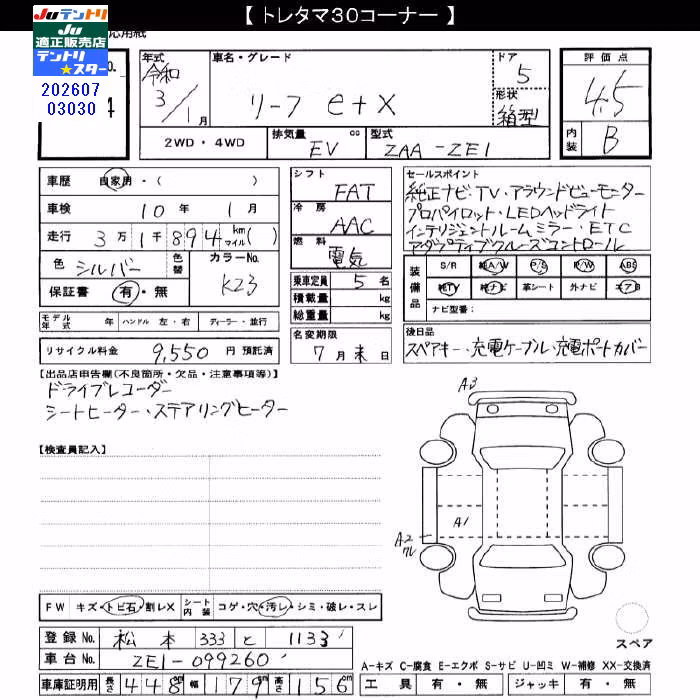 【 トレタマ30コーナー 】
Juテントリ
Ju
適正販売店
テントリ
★スター
202607
03030
年式 令和 3/1月
車名・グレード リーフ e+X
ドア 5
形状 箱型
評価点 4.5
内装 B
2WD・4WD
排気量 EV cc
型式 ZAA-ZE1
車歴 自家用・( )
車検 10年 1月
走行 3万1千894 km マイル( )
色 シルバー 色替
カラーNo. KZ3
保証書 有・無
モデル年式 年 ハンドル 左・右 ディーラー・並行
リサイクル料金 9,550 円 預託済
シフト FAT
冷房 AAC
燃料 電気
乗車定員 5 名
積載量 kg
総重量 kg
名変期限 7月末日
セールスポイント
純正ナビ・TV・アラウンドビューモニター
プロパイロット・LEDヘッドライト
インテリジェントルームミラー・ETC
アダプティブクルーズコントロール
装備品 S/R 純A/W P/S P/W ABS
純TV 純ナビ 革シート 外ナビ エアB
ナビ型番：
後日品
スペアキー・充電ケーブル・充電ポートカバー
【出品店申告欄(不良箇所・欠品・注意事項等)】
ドライブレコーダー
シートヒーター・ステアリングヒーター
【検査員記入】
A3
A1
A2
スペア
FW キズ・トビ石・割レX シート内装 コゲ・穴・汚レ・シミ・破レ・スレ
登録No. 松本 333 と 1133
車台No. ZE1-099260
車庫証明用 長さ 448cm 幅 179cm 高さ 156cm
A−キズ C−腐食 E−エクボ S−サビ U−凹ミ W−補修 XX−交換済
工具 有・無 ジャッキ 有・無